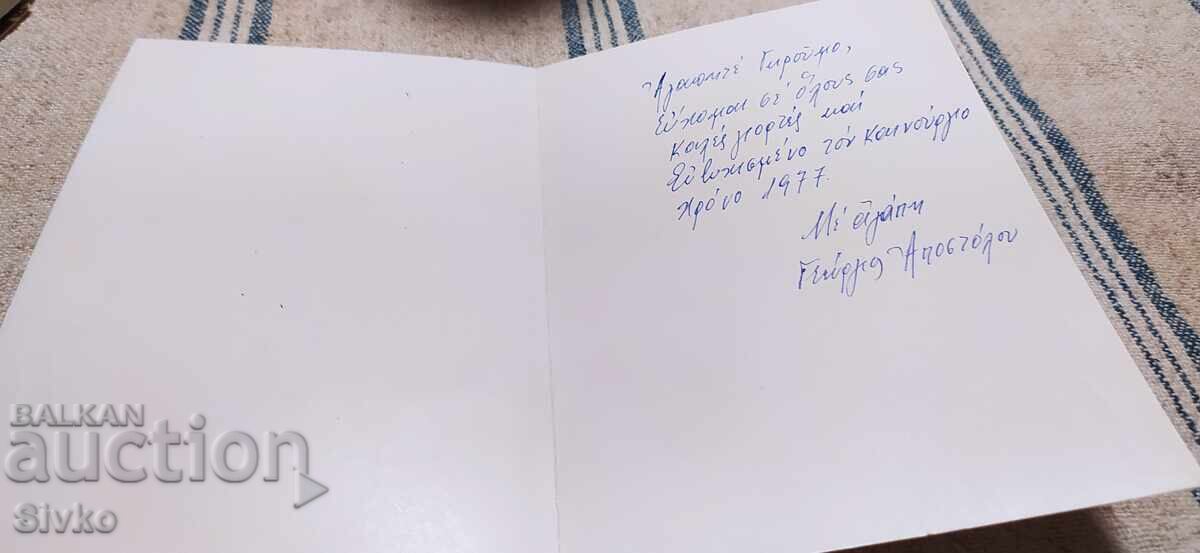 Ἀγαπητέ
Εὔχομαι σ' ὅλους σας
Καλές γιορτές καί
Εὐτυχισμένο τόν καινούργιο
χρόνο 1977.
Μέ ἀγάπη
Γεώργιος Ἀποστόλου
BALKAN
auction
Sivko